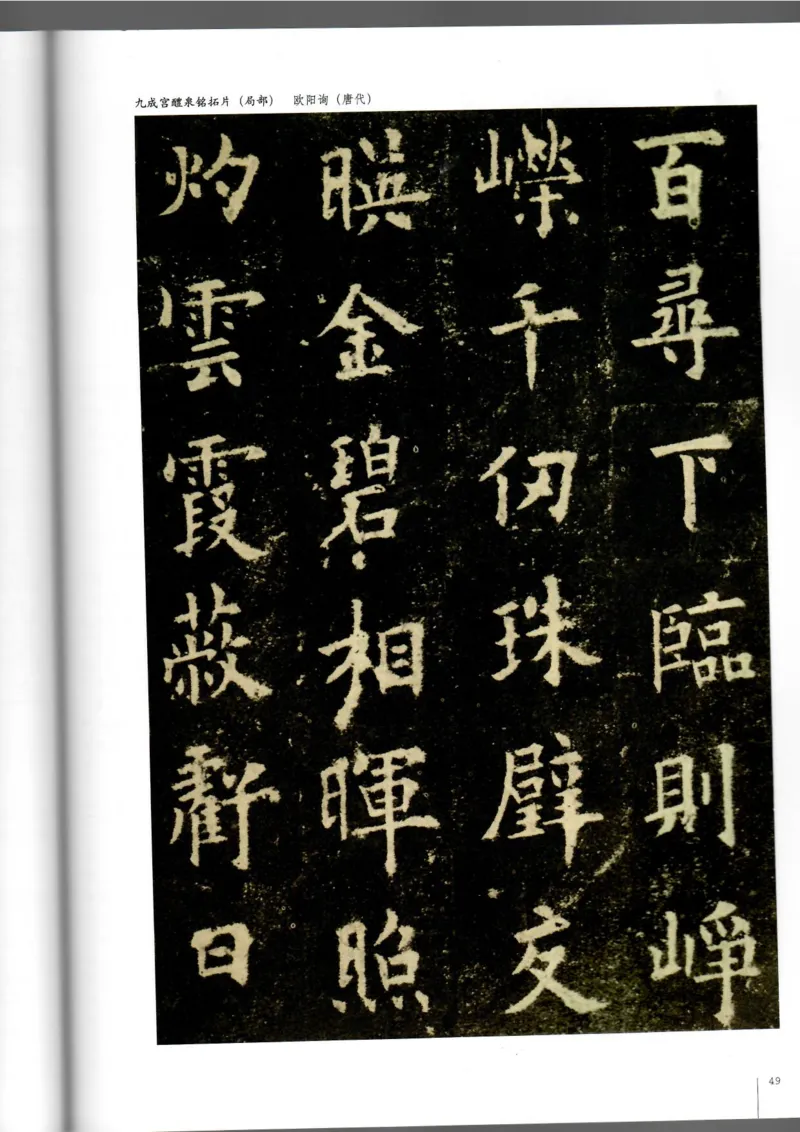 九成宫醴泉铭拓片（局部） 欧阳询（唐代）
百尋下臨則崢
嶸千仞珠璧交
暎金碧相暉照
灼雲霞蔽虧日
49